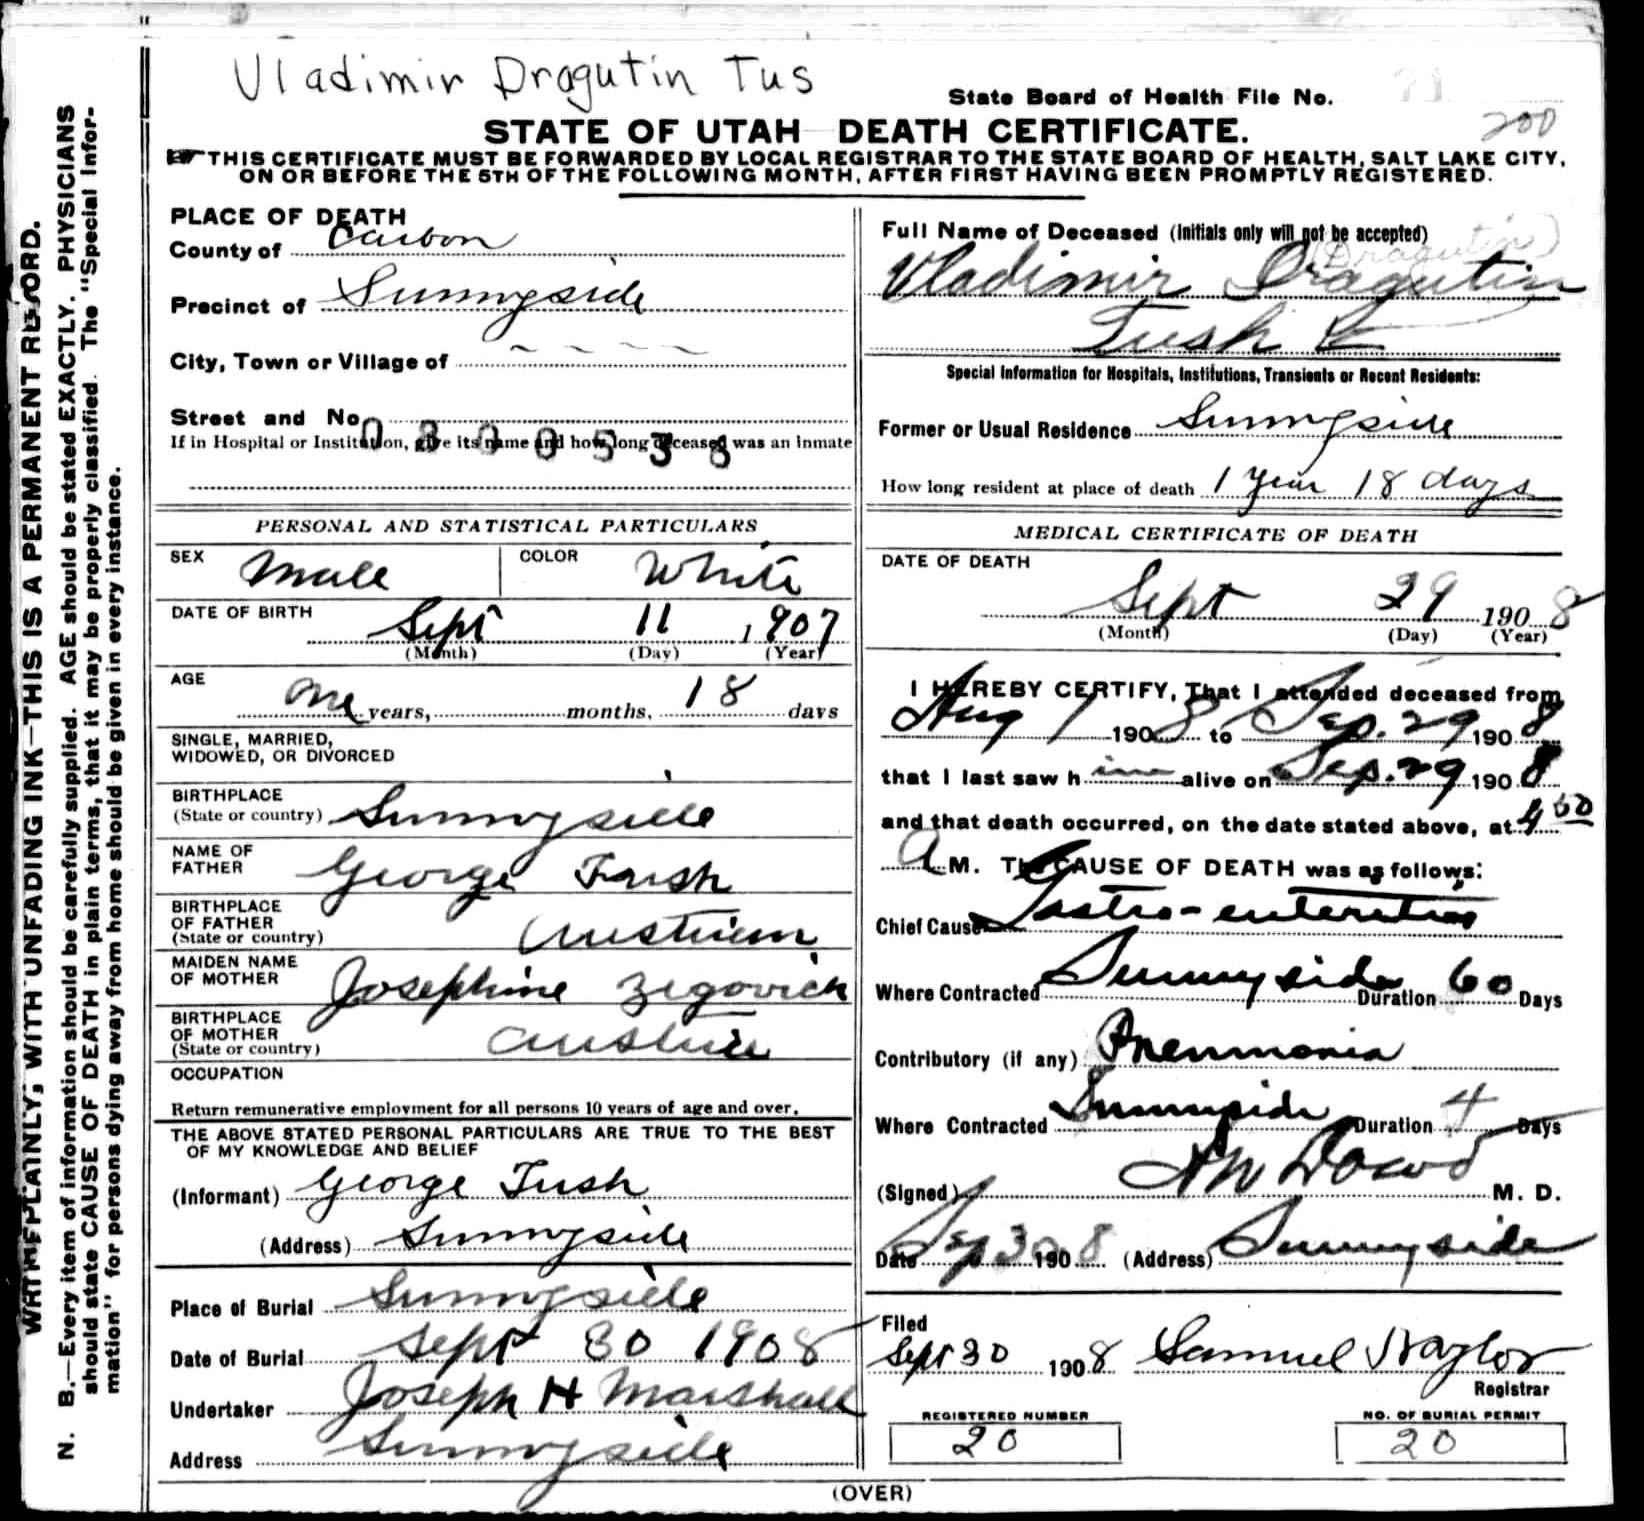 Vladimir Dragutin Tus
State Board of Health File No.
200
STATE OF UTAH DEATH CERTIFICATE.
THIS CERTIFICATE MUST BE FORWARDED BY LOCAL REGISTRAR TO THE STATE BOARD OF HEALTH, SALT LAKE CITY,
ON OR BEFORE THE 5TH OF THE FOLLOWING MONTH, AFTER FIRST HAVING BEEN PROMPTLY REGISTERED.
WRITE PLAINLY, WITH UNFADING INK—THIS IS A PERMANENT RECORD.
N. B.—Every item of information should be carefully supplied. AGE should be stated EXACTLY. PHYSICIANS
should state CAUSE OF DEATH in plain terms, that it may be properly classified. The "Special Infor-
mation" for persons dying away from home should be given in every instance.
PLACE OF DEATH
County of Carbon
Precinct of Sunnyside
City, Town or Village of
Street and No.
If in Hospital or Institution, give its name and how long deceased was an inmate
PERSONAL AND STATISTICAL PARTICULARS
SEX Male COLOR White
DATE OF BIRTH
Sept 11 1907
(Month) (Day) (Year)
AGE
One years, months, 18 days
SINGLE, MARRIED,
WIDOWED, OR DIVORCED
BIRTHPLACE
(State or country) Sunnyside
NAME OF
FATHER George Tush
BIRTHPLACE
OF FATHER
(State or country) Austrian
MAIDEN NAME
OF MOTHER Josephine Zegovich
BIRTHPLACE
OF MOTHER
(State or country) Austria
OCCUPATION
Return remunerative employment for all persons 10 years of age and over.
THE ABOVE STATED PERSONAL PARTICULARS ARE TRUE TO THE BEST
OF MY KNOWLEDGE AND BELIEF
(Informant) George Tush
(Address) Sunnyside
Place of Burial Sunnyside
Date of Burial Sept 30 1908
Undertaker Joseph H Marshall
Address Sunnyside
Full Name of Deceased (Initials only will not be accepted)
(Dragutin)
Vladimir Dragutin
Tush
Special Information for Hospitals, Institutions, Transients or Recent Residents:
Former or Usual Residence Sunnyside
How long resident at place of death 1 Year 18 days
MEDICAL CERTIFICATE OF DEATH
DATE OF DEATH
Sept 29 1908
(Month) (Day) (Year)
I HEREBY CERTIFY, That I attended deceased from
Aug 1 1908 to Sep. 29 1908
that I last saw him alive on Sep. 29 1908
and that death occurred, on the date stated above, at 4 50
A M. THE CAUSE OF DEATH was as follows:
Chief Cause Gastro-enteritis
Where Contracted Sunnyside Duration 60 Days
Contributory (if any) Pneumonia
Where Contracted Sunnyside Duration 4 Days
(Signed) A W Dowd M. D.
Date Sep 30 1908 (Address) Sunnyside
Filed
Sept 30 1908 Samuel Naylor
Registrar
REGISTERED NUMBER
20
NO. OF BURIAL PERMIT
20
(OVER)